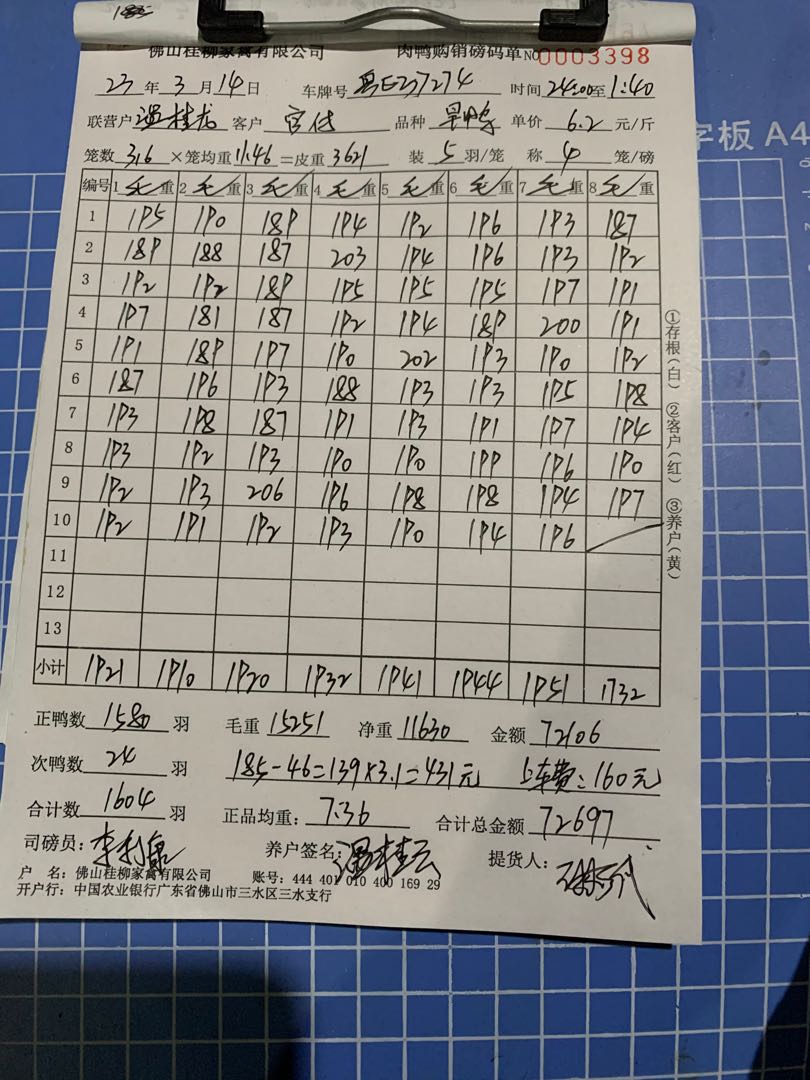 185
佛山桂柳家禽有限公司 肉鸭购销磅码单 No 0003398
23 年 3 月 14 日 车牌号 粤E37274 时间 24:00 至 1:40
联营户 温桂龙 客户 客 品种 旱鸭 单价 6.2 元/斤
笼数 316 ×笼均重 11.46 =皮重 3621 装 5 羽/笼 称 4 笼/磅
编号 1 毛 重 2 毛 重 3 毛 重 4 毛 重 5 毛 重 6 毛 重 7 毛 重 8 毛 重
1 195 190 189 194 192 196 193 187
2 189 188 187 203 194 196 193 192
3 192 192 189 195 195 195 197 191
4 197 181 187 192 194 189 200 191
5 191 189 197 190 202 193 190 192
6 187 196 193 188 193 193 195 198
7 193 198 187 191 193 191 197 194
8 193 192 193 190 190 199 196 190
9 192 193 206 196 198 198 194 197
10 192 191 192 193 190 194 196
11
12
13
小计 1921 1910 1920 1932 1941 1944 1951 1732
正鸭数 1580 羽 毛重 15251 净重 11630 金额 72106
次鸭数 24 羽 185-46=139×3.1=431元 上车费:160元
合计数 1604 羽 正品均重: 7.36 合计总金额 72697
司磅员: 养户签名: 提货人:
户 名: 佛山桂柳家禽有限公司 账号: 444 401 010 400 169 29
开户行: 中国农业银行广东省佛山市三水区三水支行
①存根(白) ②客户(红) ③养户(黄)
字板 A4